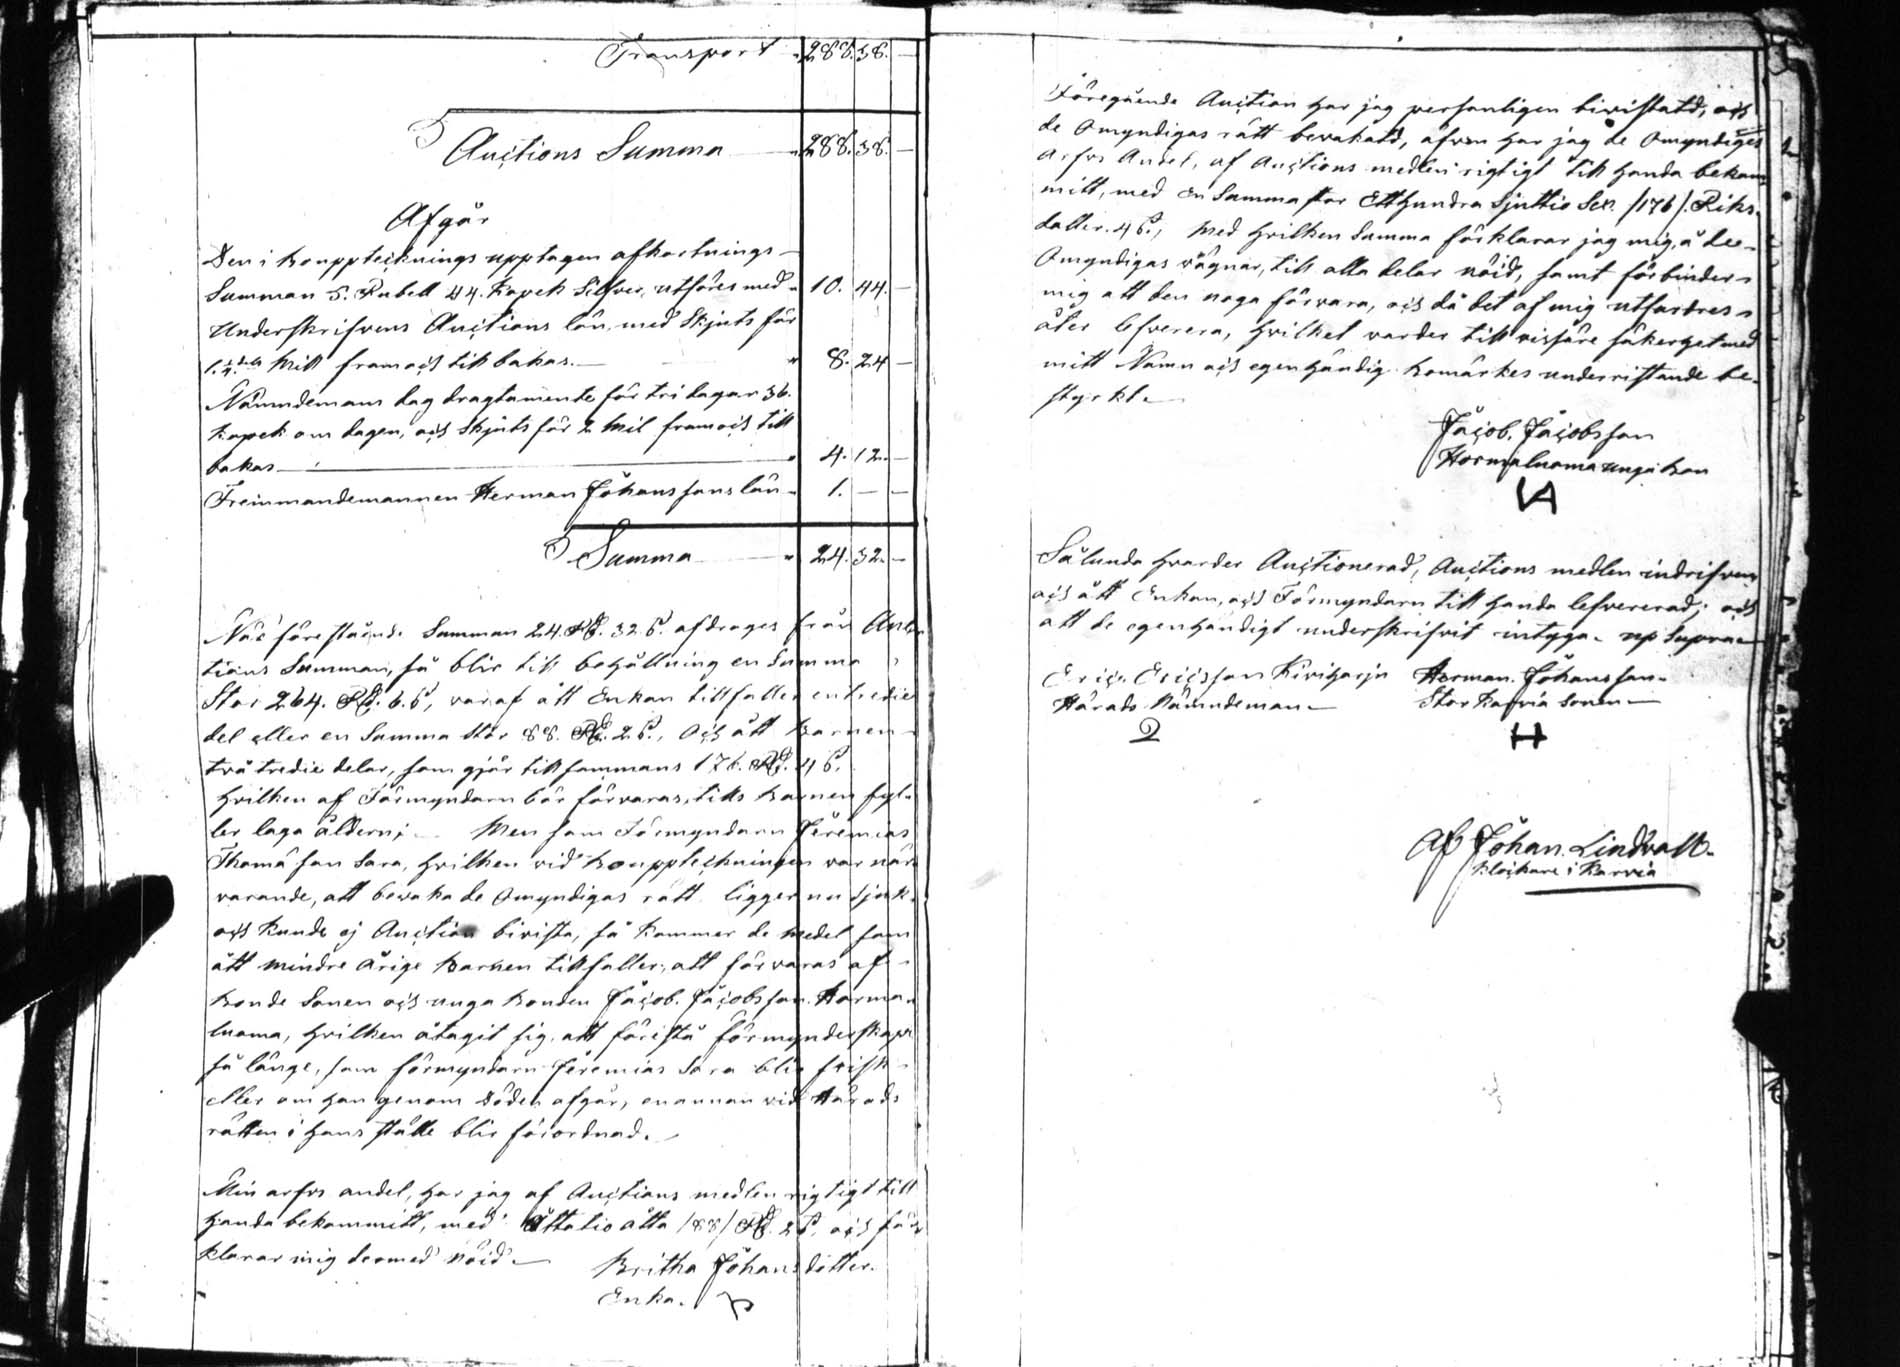 Transport - 288. 38. -
Auctions Summa - 288. 38. -
Afgår
Den i Bouppteckningen upptagen afkortnings-
Summan 5. Rubell 44. Kopek Silfver, utföres med - 10. 44. -
Underskrifvens Auctions lön, med Skjuts för
Mill fram och till bakas. - 8. 24 -
Nämndemans dag dragtamente för tri dagar 36.
Kopek om dagen, och Skjuts för 2 Mil fram och till
bakas - 4. 12. -
Fremmandemannen Herman Johanssons lön - 1. - -
Summa - 24. 32. -
När förestående Summan 24. Rd. 32. s. afdrages från Auc-
tions Summan, så blir till behållning en Summa
Stor 264. Rd. 6. s, varaf ått Enkan tillfaller en tredie
del eller en Summa stor 88. Rd. 2 s., och ått Barnen
två tredie delar, som gjör tillsammans 176. Rd. 4 s.
hvilken af Förmyndarn bör förvaras, tills Barnen fyl-
ler laga åldern; - Men som Förmyndarn Jeremias
Thomasson Sara, hvilken vid Bouppteckningen var när-
varande, att bevaka de Omyndigas rätt ligger nu sjuk.
och kunde ej Auction bivista, så kommer de medel som
ått mindre Årige Barnen tillfaller, att förvaras af
Bonde Sonen och unga Bonden Jacob. Jacobsson Horma-
luoma, hvilken åtagit sig, att förestå förmynderskapet
så länge, som förmyndarn Jeremias Sara blir frisk
eller om han genom döden afgår, en annan vid Härads
rätten i hans ställe blir förordnad.
Min arfvs andel, har jag af Auctions medlen rigtigt till
handa bekommitt, med Åttatio åtta /88/ Rd. 2 s. och för-
klarar mig dermed nöid. -
Britha Johansdotter.
Enka.
Föregående Auction har jag personligen bivistatd, och
de Omyndigas rätt bevakatd, äfven har jag de Omyndiges
arfvs Andel, af Auctions medlen rigtigt till handa bekom-
mitt, med en Summa stor Etthundra Sjuttio Sex /176/. Riks-
daller. 4 s., Med hvilken Summa förklarar jag mig, å de-
Omyndigas vägnar, till alla delar nöid, samt förbinder-
mig att den noga förvara, och då det af mig utfordres-
åter lefverera, hvilket varder till visso säkerhet med
mitt Namn och egenhändig Bomärkes underristande be-
styrkt. -
Jacob. Jacobsson
Hormaluoma unga Bon
Sålunda hvarder Auctionerad, Auctions medlen indrifven
och ått Enkan, och Förmyndarn till handa lefvererad; och
att de egenhändigt underskrifvit intyga. up supra -
Eric. Ericsson Kiviharju
Härads Nämndeman -
Herman. Johansson -
Stor Karvia Sonen -
Af Johan. Lindvall.
Klockare i Karvia